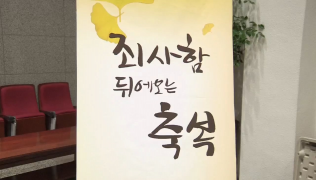 죄사함
뒤에오는
축복